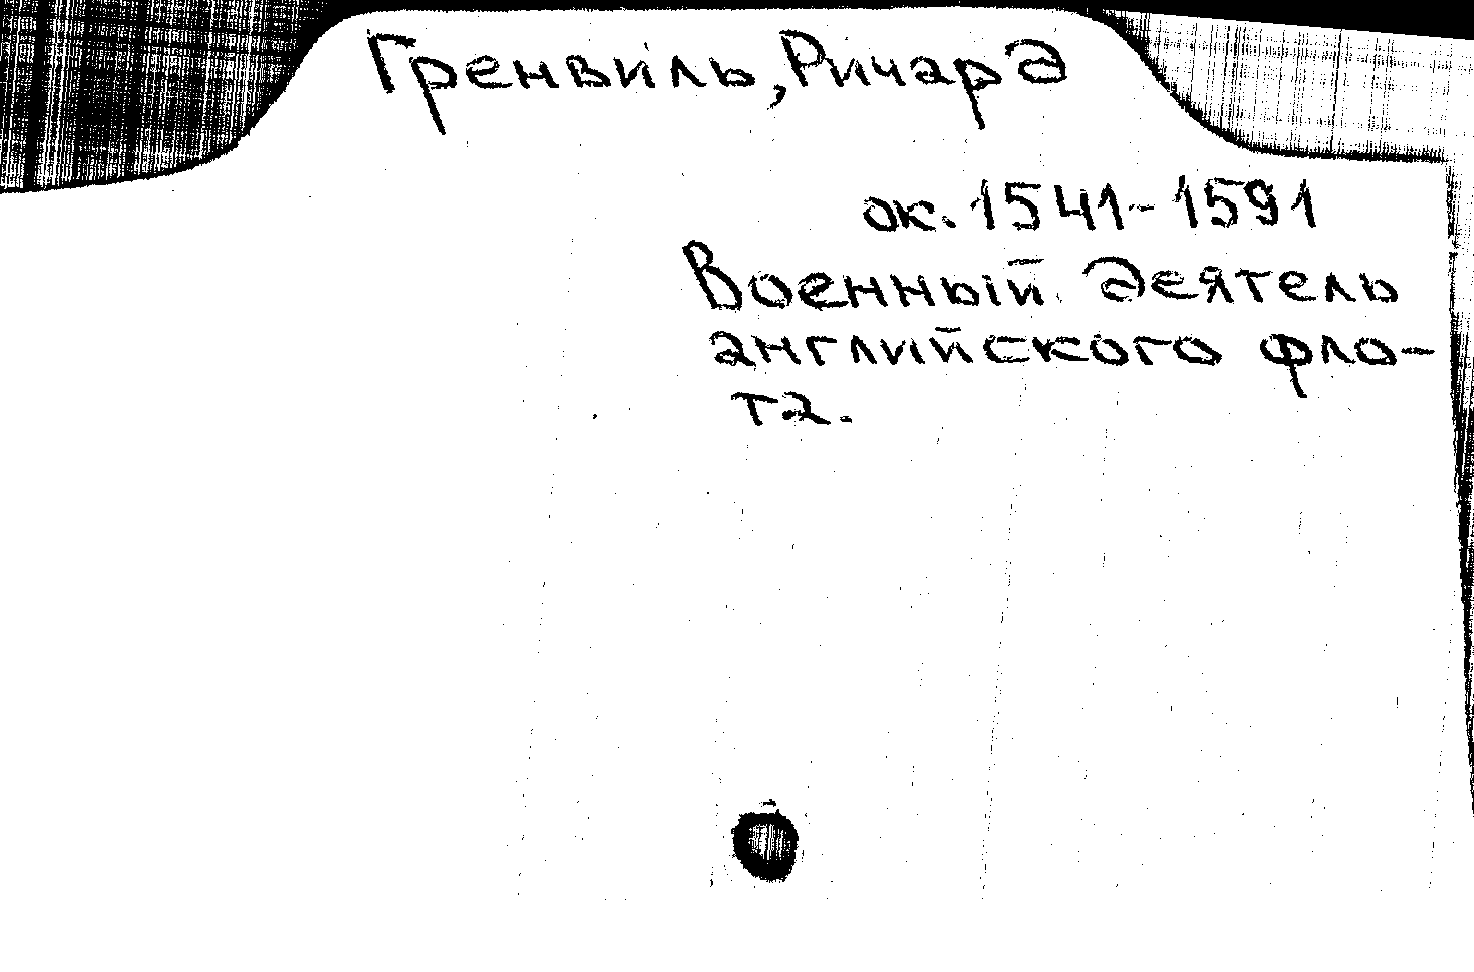 Гренвиль, Ричард
ок. 1541-1591
Военный деятель
английского фло-
та.